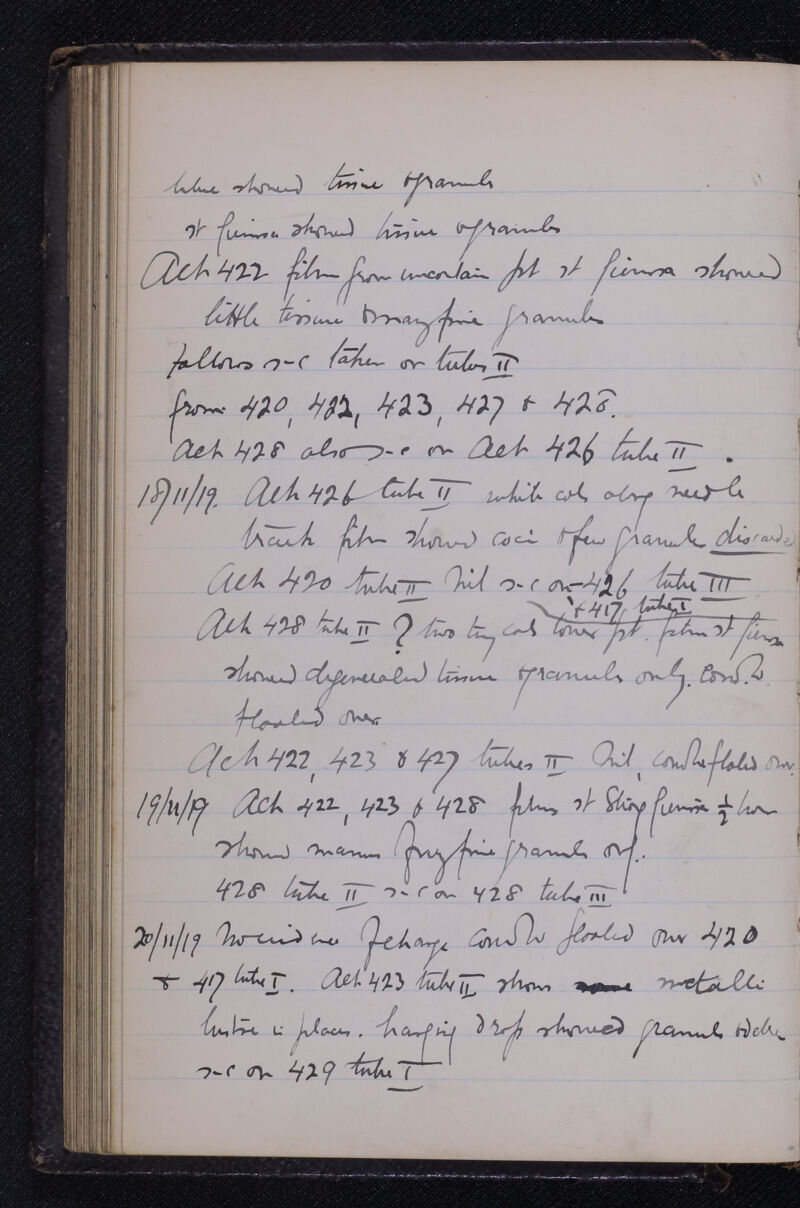 blue showed tissue & granules
st Giemsa showed tissue & granules
Ach 422 film from uncertain pt st Giemsa showed
little tissue & many fine granules
follows s-c taken on tubes II
from 420, 422, 423, 427 & 428.
Ach 428 also s-c on Ach 426 tube II.
18/11/19. Ach 426 tube II white cols along needle
track film showed cocci & few granules discarded
Ach 420 tube II Nil s-c on 426 tube III
& 417 tube I
Ach 428 tube II ? two tiny cols lower pt. film st Giemsa
showed degenerated tissue & granules only.
floated over
Ach 422, 423 & 427 tubes II Nil, over.
19/11/19 Ach 422, 423 & 428 films st Strong Giemsa ½ hour
showed fine granules only.
428 tube II s-c on 428 tube III
20/11/19 No evidence of change floated over 420
& 417 tube I. Ach 423 tube II shows metallic
lustre in places. hanging drop showed granules
s-c on 429 tube I